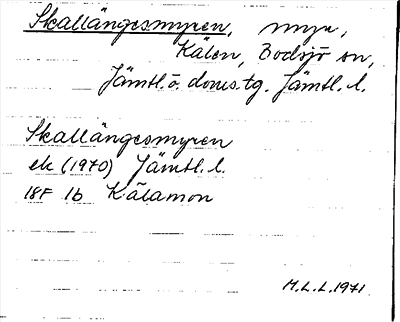 Skallängesmyren, myr,
Kälen, Bodsjö sn,
Jämtl. ö. doms.tg. Jämtl. l.
Skallängesmyren
ek (1970) Jämtl. l.
18F 1b Kälamon
M.L.L. 1971